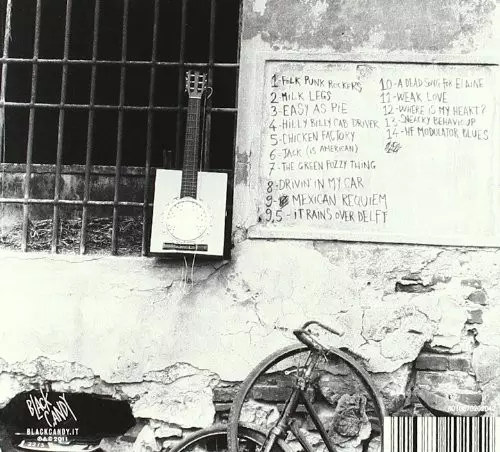 1 FOLK PUNK ROCKERS
2 MILK LEGS
3 EASY AS PIE
4 HILLY BILLY CAB DRIVER
5 CHICKEN FACTORY
6 - JACK (IS AMERICAN)
7 - THE GREEN FUZZY THING
8 - DRIVIN' IN MY CAR
9 - MEXICAN REQUIEM
9,5 - IT RAINS OVER DELFT
10 - A DEAD SONG FOR ELAINE
11 - WEAK LOVE
12 - WHERE IS MY HEART?
13 - SNEAKY BEHAVIOUR
14 - HF MODULATOR BLUES
BLACK CANDY
BLACKCANDY.IT
2011